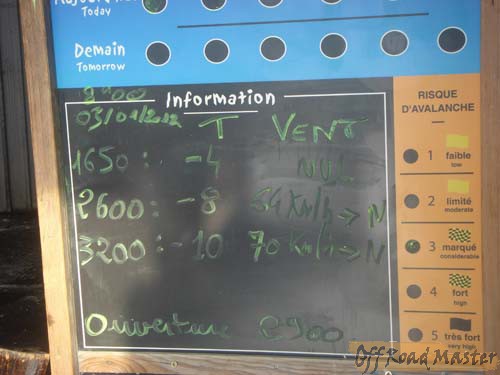 Aujourd'hui
Today
Demain
Tomorrow
8h00
Information
03/01/2012 T VENT
1650 : -4 NUL
2600 : -8 64 Km/h → N
3200 : -10 70 Km/h → N
Ouverture 9h00
RISQUE
D'AVALANCHE
1 faible
low
2 limité
moderate
3 marqué
considerable
4 fort
high
5 très fort
very high
Off Road Master